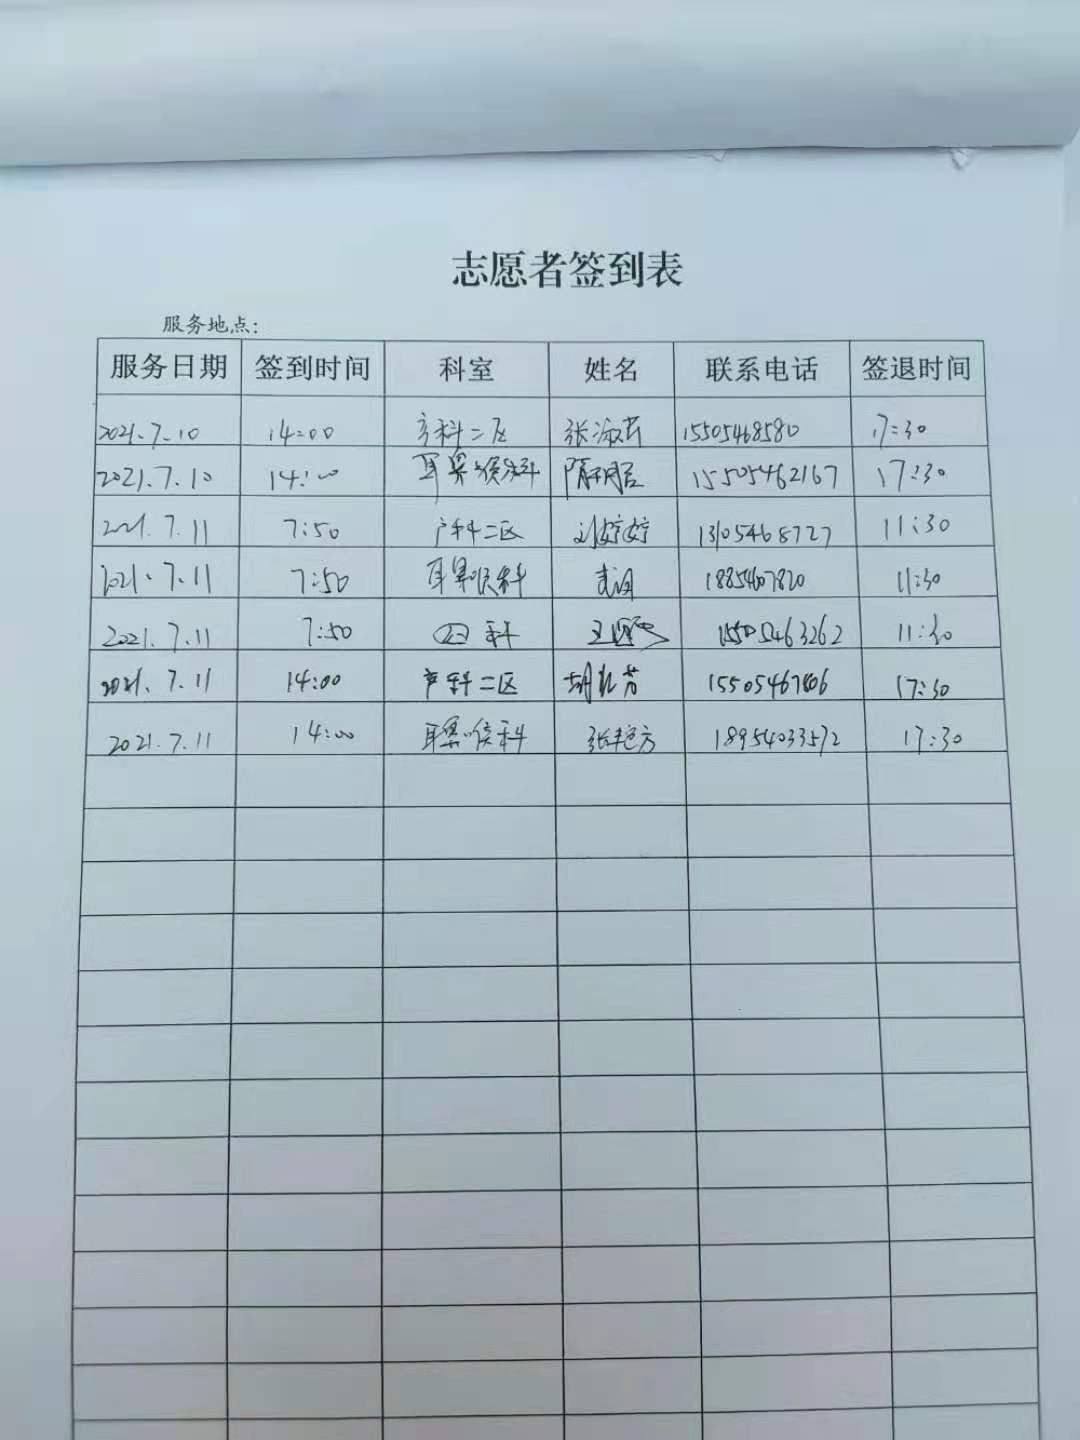 志愿者签到表
服务地点:
服务日期 签到时间 科室 姓名 联系电话 签退时间
2021.7.10 14:00 产科二区 张淑芹 15505468580 17:30
2021.7.10 14:00 耳鼻喉科 隋 15505462167 17:30
2021.7.11 7:50 产科二区 刘婷婷 13105468727 11:30
2021.7.11 7:50 耳鼻喉科 11:30
2021.7.11 7:50 科 王 15505463262 11:30
2021.7.11 14:00 产科二区 胡 芳 17:30
2021.7.11 14:00 耳鼻喉科 张艳方 18954033572 17:30